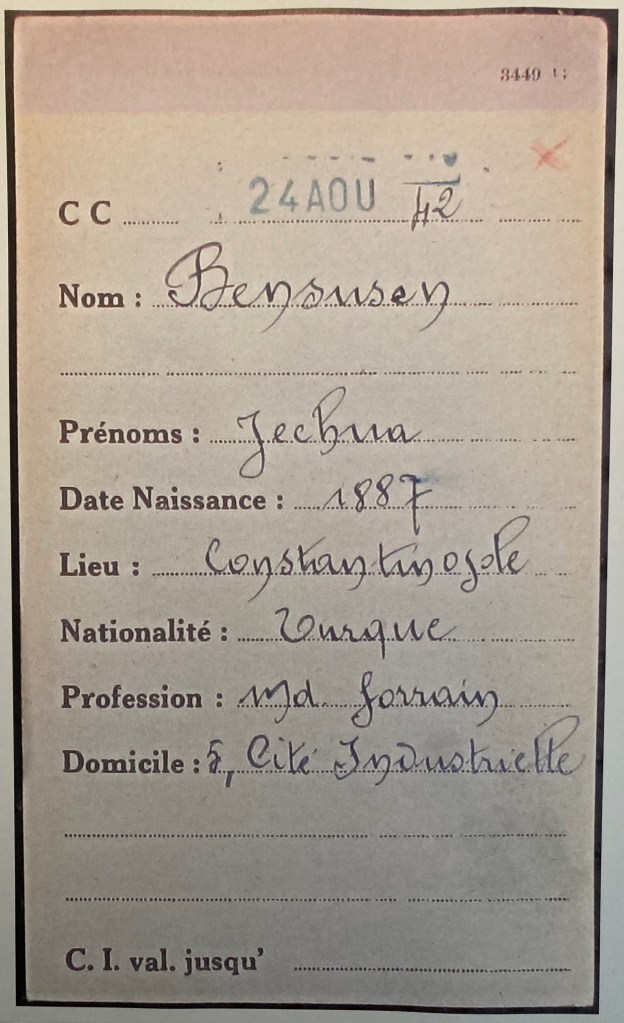 3449
C C 24 AOU 42
Nom : Bensusen
Prénoms : Jechua
Date Naissance : 1887
Lieu : Constantinople
Nationalité : Turque
Profession : Md. forrain
Domicile : 5, Cité Industrielle
C. I. val. jusqu'